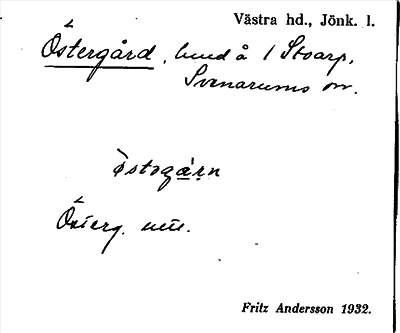 Västra hd., Jönk. l.
Östergård, hmd å 1 Stoarp,
Svenarums sn.
östəgá̱ṛn
Österg. utt.
Fritz Andersson 1932.